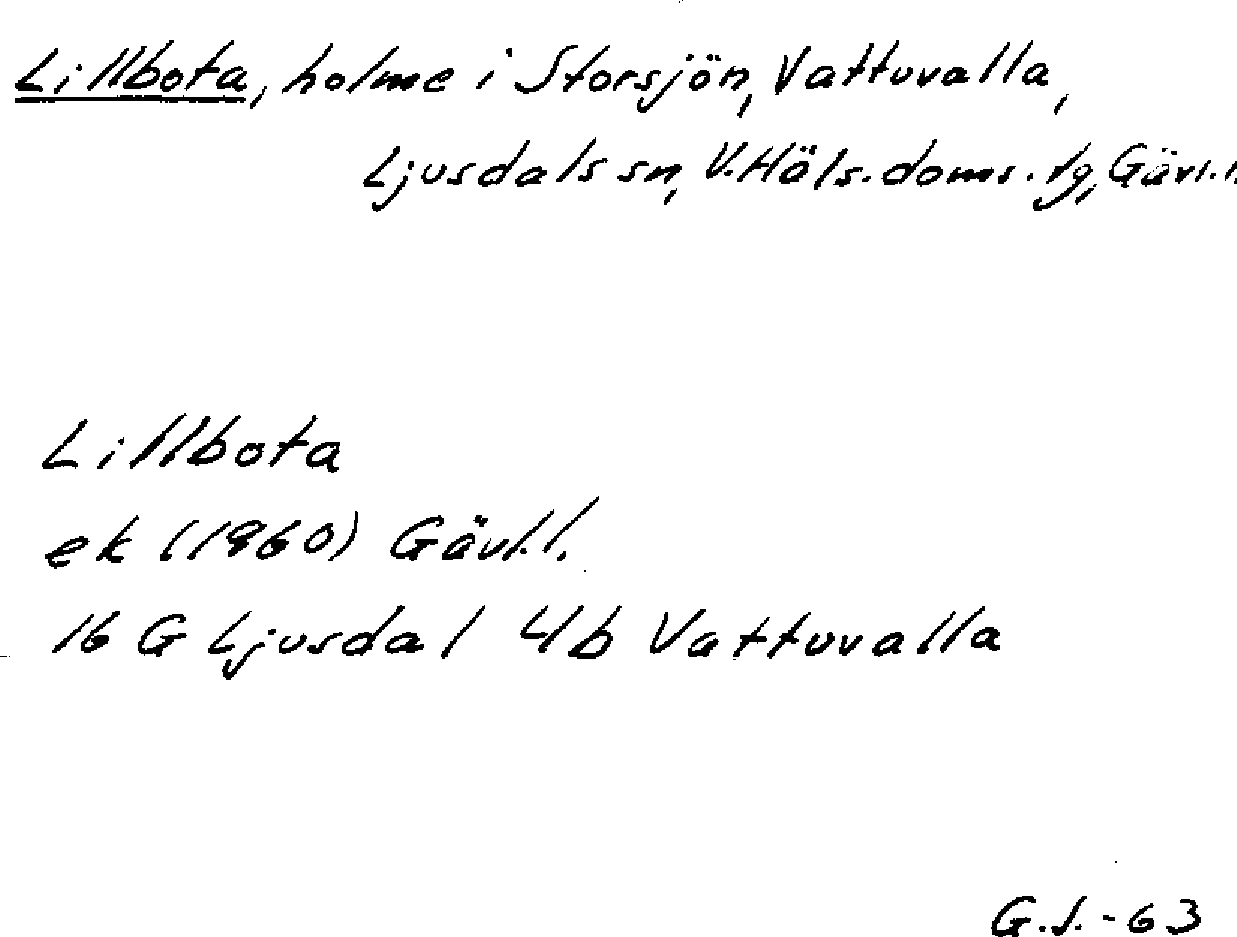 Lillbota, holme i Storsjön, Vattuvalla,
Ljusdals sn, V. Häls. doms. tg, Gävl. l.
Lillbota
ek (1960) Gävl. l.
16 G Ljusdal 4b Vattuvalla
G.J. - 63